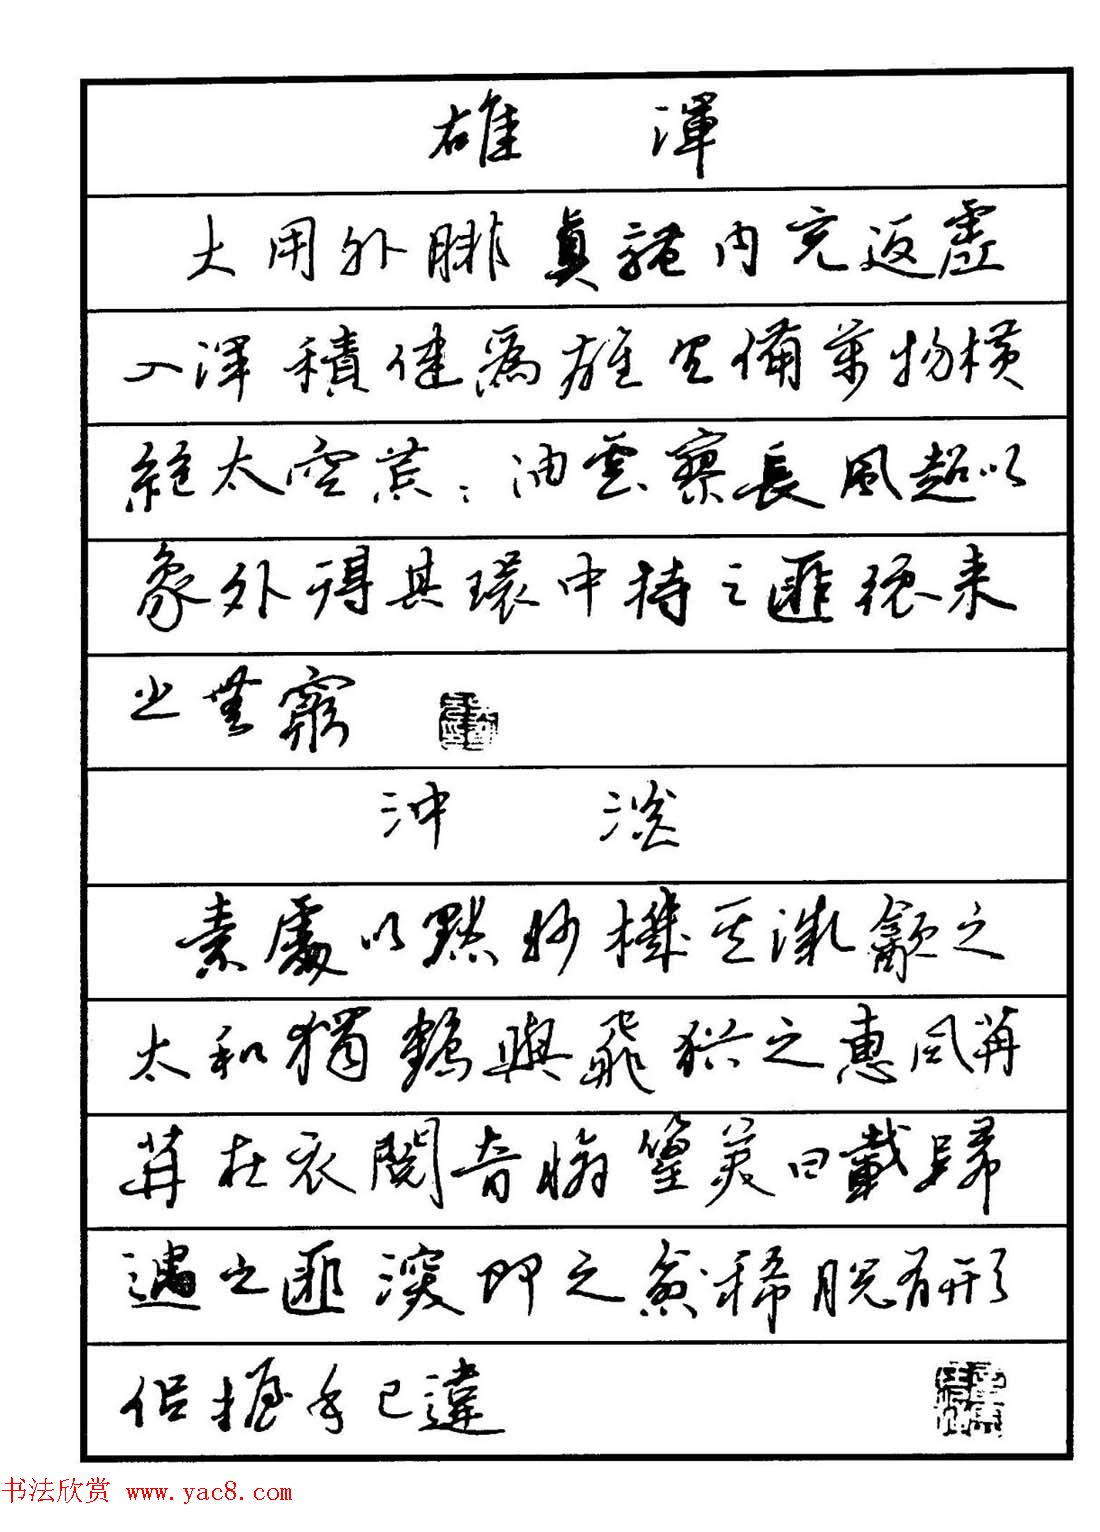 雄渾
大用外腓真體内充返虛
入渾積健為雄具備萬物橫
絕太空荒〻油雲寥長風超以
象外得其環中持之匪強来
之無窮
沖淡
素處以默妙機其微飲之
太和獨鶴與飛猶之惠風苒
苒在衣閱音脩篁美曰載歸
遇之匪深即之愈稀脫有形
似握手已違
书法欣赏 www.yac8.com